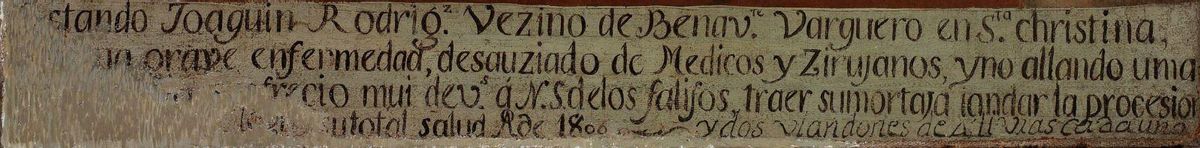 stando Joaquin Rodrigz. Vezino de Benavte. Varguero en Sta. christina,
grave enfermedad, desauziado de Medicos y Zirujanos, y no allando uma
frecio mui devs. á N.S. de los falifos, traer su mortaja iandar la procesion
su total salud A. de 180 y dos viandones de A II Vias cada uno